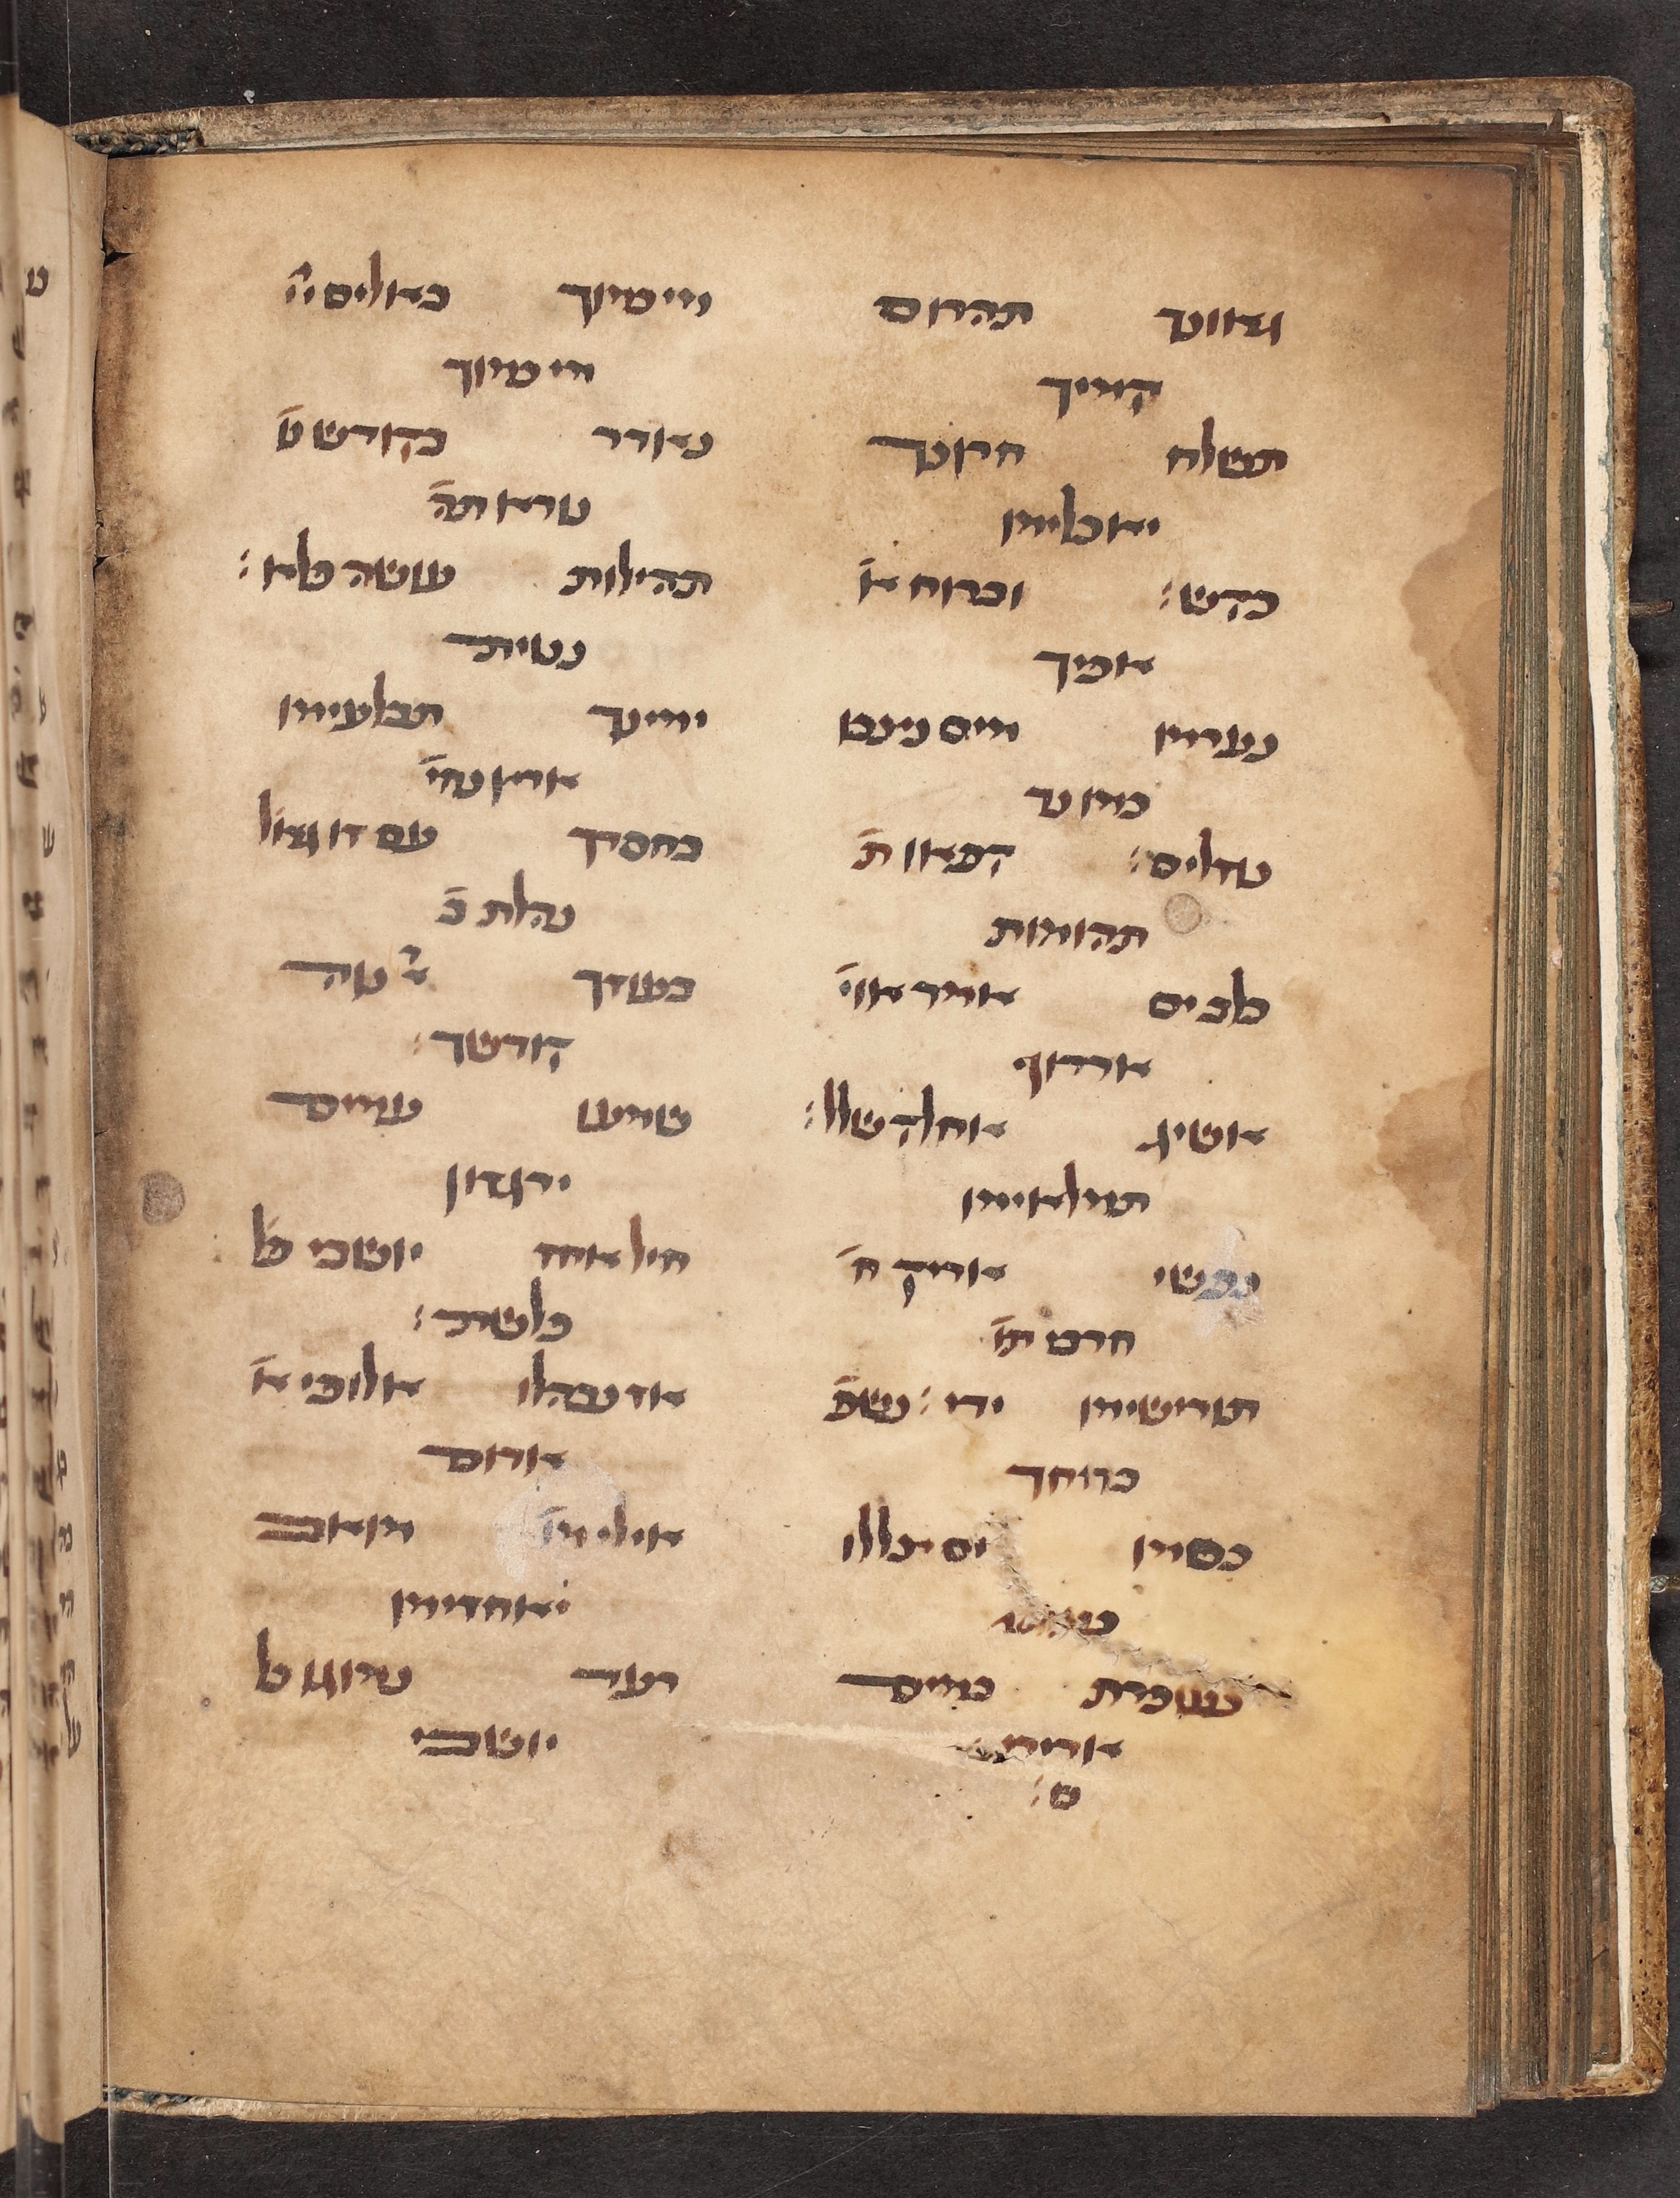 גאונך תהרוס
קמיך
תשלח חרונך
יאכלימו
כקש: וברוח א
אפיך
נערמו מים ניצבו
כמו נד
נוזלים: קפאו ת
תהומות
בלב ים אמר אוי
ארדוף
אשיג אחלק שלל:
תמלאימו
נפשי אריק ח
חרבי ת
תורישימו ידי: נשפ
ברוחך
כסמו ים צללו
כעופרת במים
אדירי
ם:
מי כמוך באלים יה
מי כמוך
נאדר בקודש נ
נוראתה
תהילות עושה פלא:
נטית
ימינך תבלעימו
ארץ נחי
בחסדך עם זו גאל
נהלת ב
בעוזך נוה
קודשך:
שמעו עמים
ירגזון
חיל אחז יושבי פל
פלשת:
אז נבהלו אלופי א
אדום
אילי מ מואב
יאחזימו
רעד נמוגו כל
יושבי